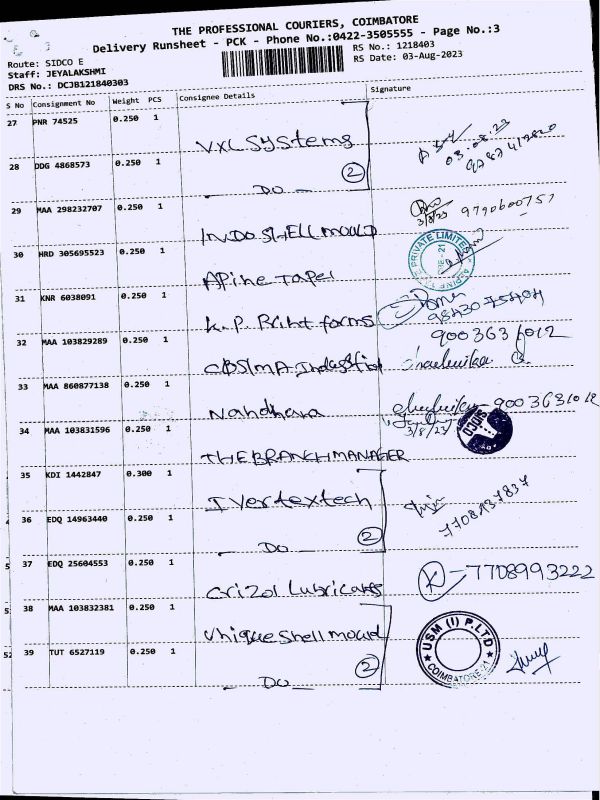 THE PROFESSIONAL COURIERS, COIMBATORE
Delivery Runsheet - PCK - Phone No.:0422-3505555 - Page No.:3
Route: SIDCO E
RS No.: 1218403
Staff: JEYALAKSHMI
RS Date: 03-Aug-2023
DRS No.: DCJB121840303
S No Consignment No Weight PCS Consignee Details Signature
27 PNR 74525 0.250 1 VXL SYStems
03.08.23
28 DDG 4868573 0.250 1 — DO — 2
29 MAA 298232707 0.250 1 INDO SHELL MOULD
3/8/23 9790600757
30 HRD 305695523 0.250 1 APine TaPel
PRIVATE LIMITED
31 KNR 6038091 0.250 1 K.P. Print forms
32 MAA 103829289 0.250 1 Industrial
900363 1012
33 MAA 860877138 0.250 1 Nandhana
9003631012
3/8/23
SIDCO
34 MAA 103831596 0.250 1 THE BRANCH MANAGER
35 KDI 1442847 0.300 1 I Vertextech
7708937837
36 EDQ 14963440 0.250 1 — DO — 2
37 EDQ 25604553 0.250 1 Crizol Lubricates
K — 7708993222
38 MAA 103832381 0.250 1 Unique Shell mould
USM (I) P.LTD
COIMBATORE-21
39 TUT 6527119 0.250 1 — DO — 2